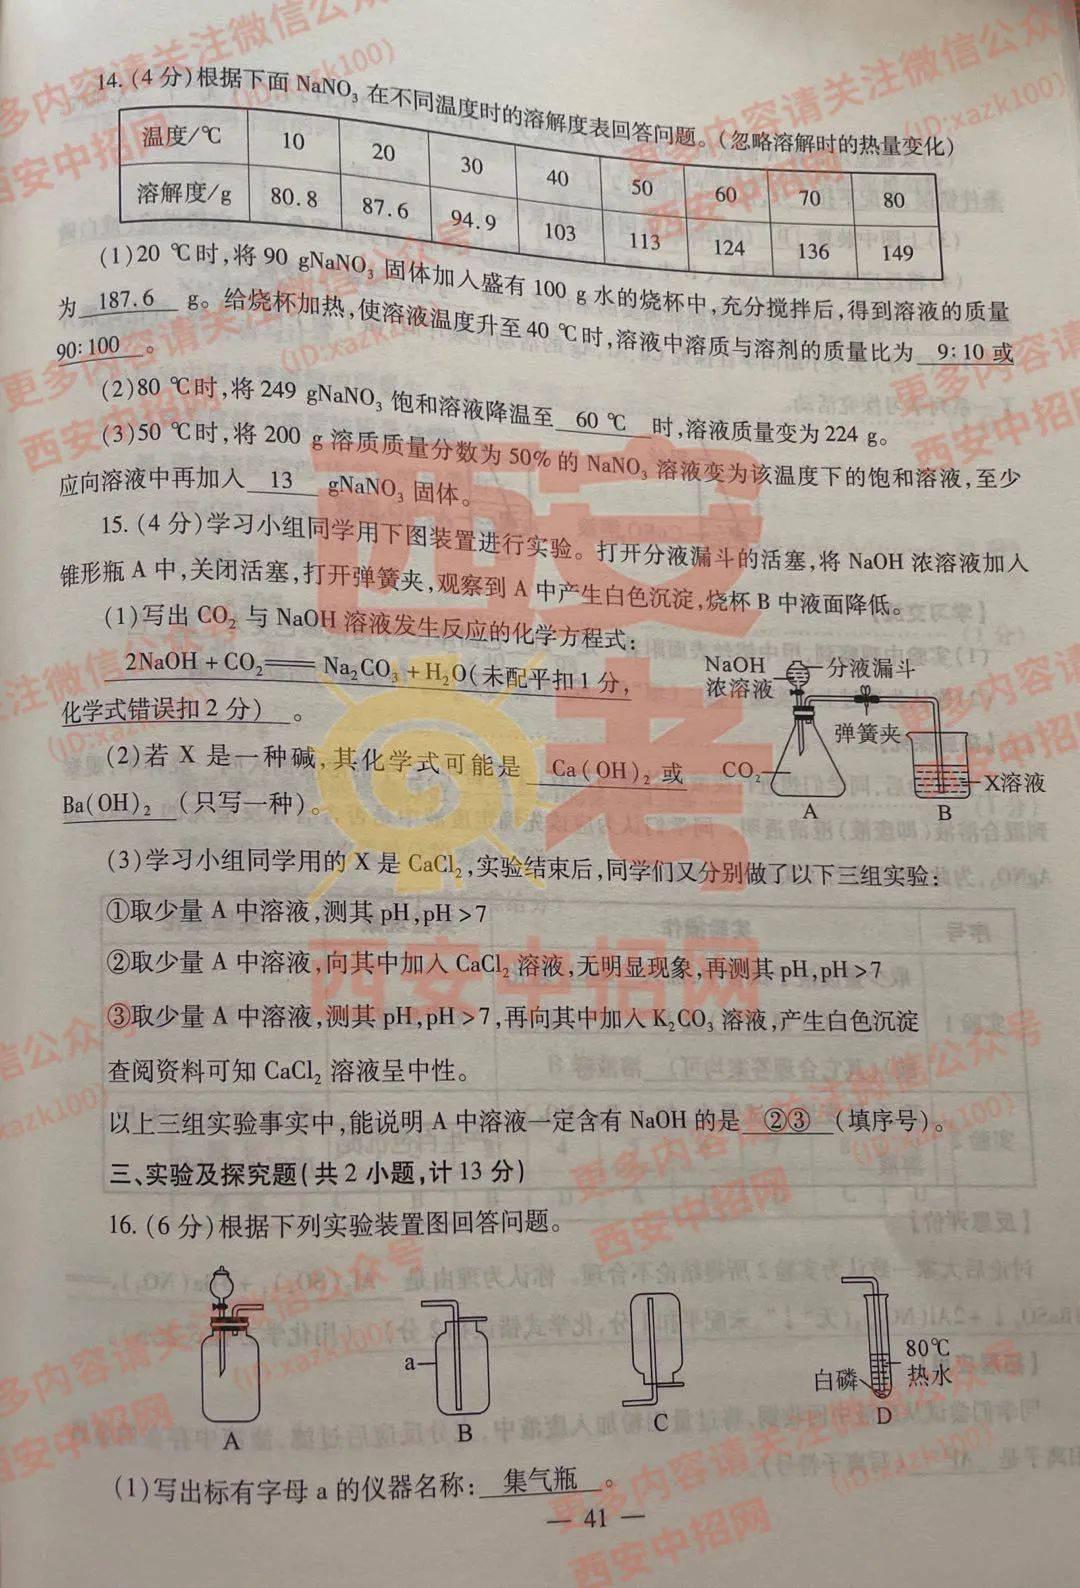 14.(4分)根据下面 NaNO₃ 在不同温度时的溶解度表回答问题。(忽略溶解时的热量变化)
温度/℃ 10 20 30 40 50 60 70 80
溶解度/g 80.8 87.6 94.9 103 113 124 136 149
(1)20 ℃时,将 90 gNaNO₃ 固体加入盛有 100 g 水的烧杯中,充分搅拌后,得到溶液的质量
为 187.6 g。给烧杯加热,使溶液温度升至 40 ℃时,溶液中溶质与溶剂的质量比为 9:10 或
90:100 。
(2)80 ℃时,将 249 gNaNO₃ 饱和溶液降温至 60 ℃ 时,溶液质量变为 224 g。
(3)50 ℃时,将 200 g 溶质质量分数为 50% 的 NaNO₃ 溶液变为该温度下的饱和溶液,至少
应向溶液中再加入 13 gNaNO₃ 固体。
15.(4分)学习小组同学用下图装置进行实验。打开分液漏斗的活塞,将 NaOH 浓溶液加入
锥形瓶 A 中,关闭活塞,打开弹簧夹,观察到 A 中产生白色沉淀,烧杯 B 中液面降低。
(1)写出 CO₂ 与 NaOH 溶液发生反应的化学方程式:
2NaOH + CO₂ ═══ Na₂CO₃ + H₂O(未配平扣1分,
化学式错误扣2分) 。
NaOH
浓溶液
分液漏斗
弹簧夹
CO₂
X溶液
A
B
(2)若 X 是一种碱,其化学式可能是 Ca(OH)₂ 或
Ba(OH)₂ (只写一种)。
(3)学习小组同学用的 X 是 CaCl₂,实验结束后,同学们又分别做了以下三组实验:
①取少量 A 中溶液,测其 pH,pH>7
②取少量 A 中溶液,向其中加入 CaCl₂ 溶液,无明显现象,再测其 pH,pH>7
③取少量 A 中溶液,测其 pH,pH>7,再向其中加入 K₂CO₃ 溶液,产生白色沉淀
查阅资料可知 CaCl₂ 溶液呈中性。
以上三组实验事实中,能说明 A 中溶液一定含有 NaOH 的是 ②③ (填序号)。
三、实验及探究题(共2小题,计13分)
16.(6分)根据下列实验装置图回答问题。
a
80℃
热水
白磷
A
B
C
D
(1)写出标有字母 a 的仪器名称: 集气瓶 。
— 41 —
更多内容请关注微信公众号
(ID:xazk100)
西安中招网
西安
中考
西安中招网